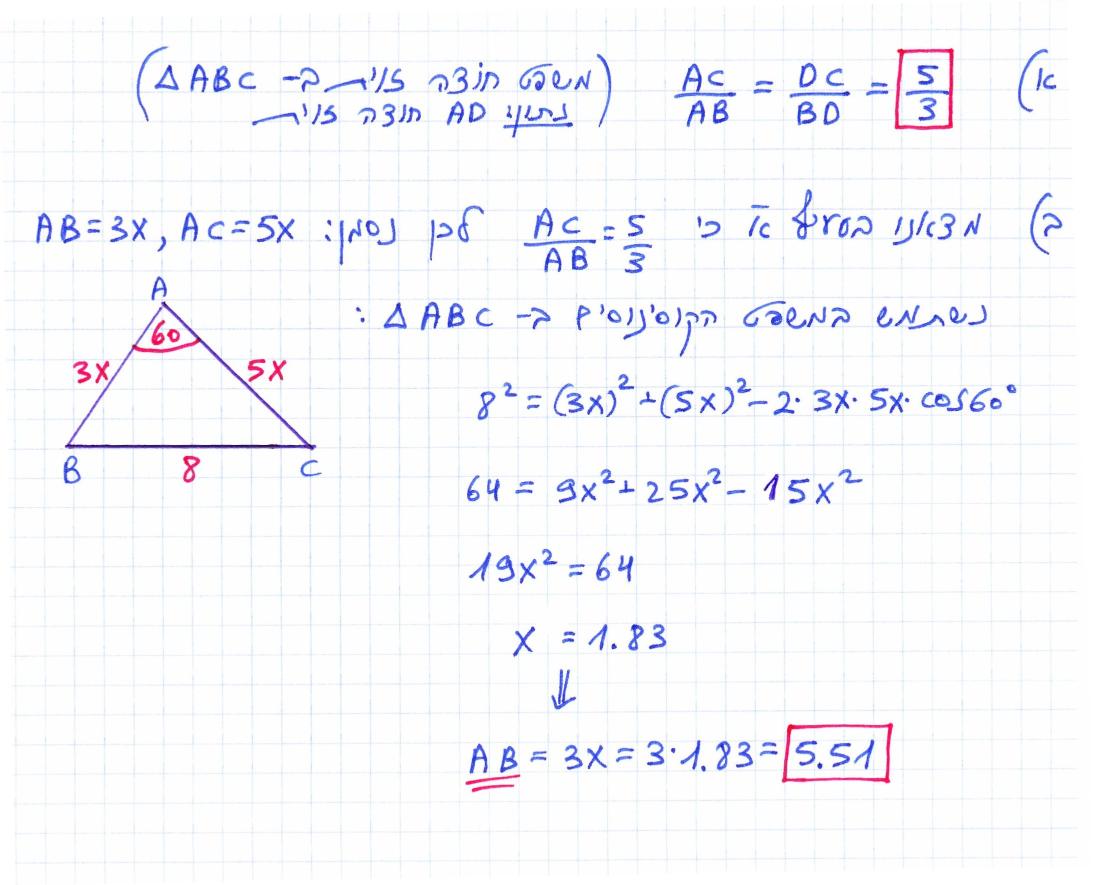 א) AC/AB = DC/BD = 5/3 (משפט חוצה זווית ב- ΔABC
נתון AD חוצה זווית)
ב) מצאנו בסעיף א' כי AC/AB = 5/3 לכן נסמן: AB=3X, AC=5X
נשתמש במשפט הקוסינוסים ב- ΔABC :
A
60
3X
5X
B
8
C
8² = (3x)² + (5x)² - 2·3x·5x·cos60°
64 = 9x² + 25x² - 15x²
19x² = 64
X = 1.83
⇓
AB = 3X = 3·1.83 = 5.51